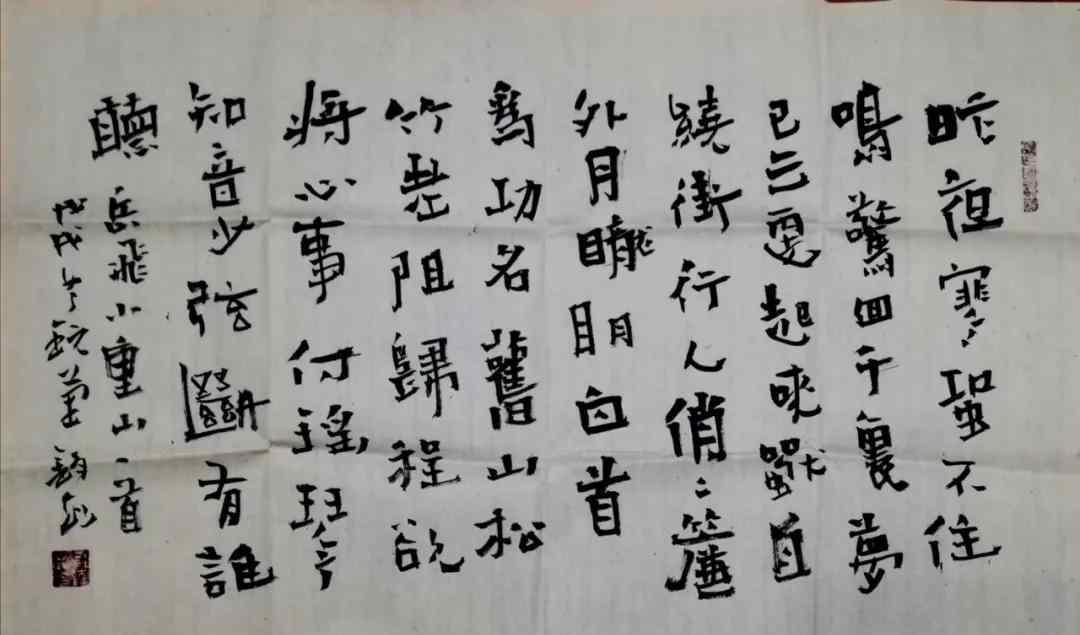 昨夜寒蛩不住
鳴驚回千裏夢
已三更起來獨自
繞街行人俏〻簾
外月朧明白首
為功名舊山松
竹老阻歸程欲
將心事付瑤琴
知音少弦斷有誰
聽
岳飛小重山一首
戊戌年